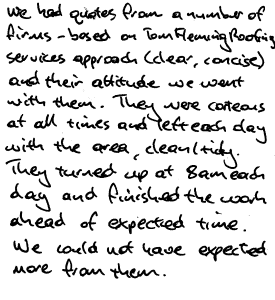 we had quotes from a number of
firms - based on Tom Fleming Roofing
services approach (clear, concise)
and their attitude we went
with them. They were corteous
at all times and left each day
with the area, clean/tidy.
They turned up at 8am each
day and finished the work
ahead of expected time.
We could not have expected
more from them.